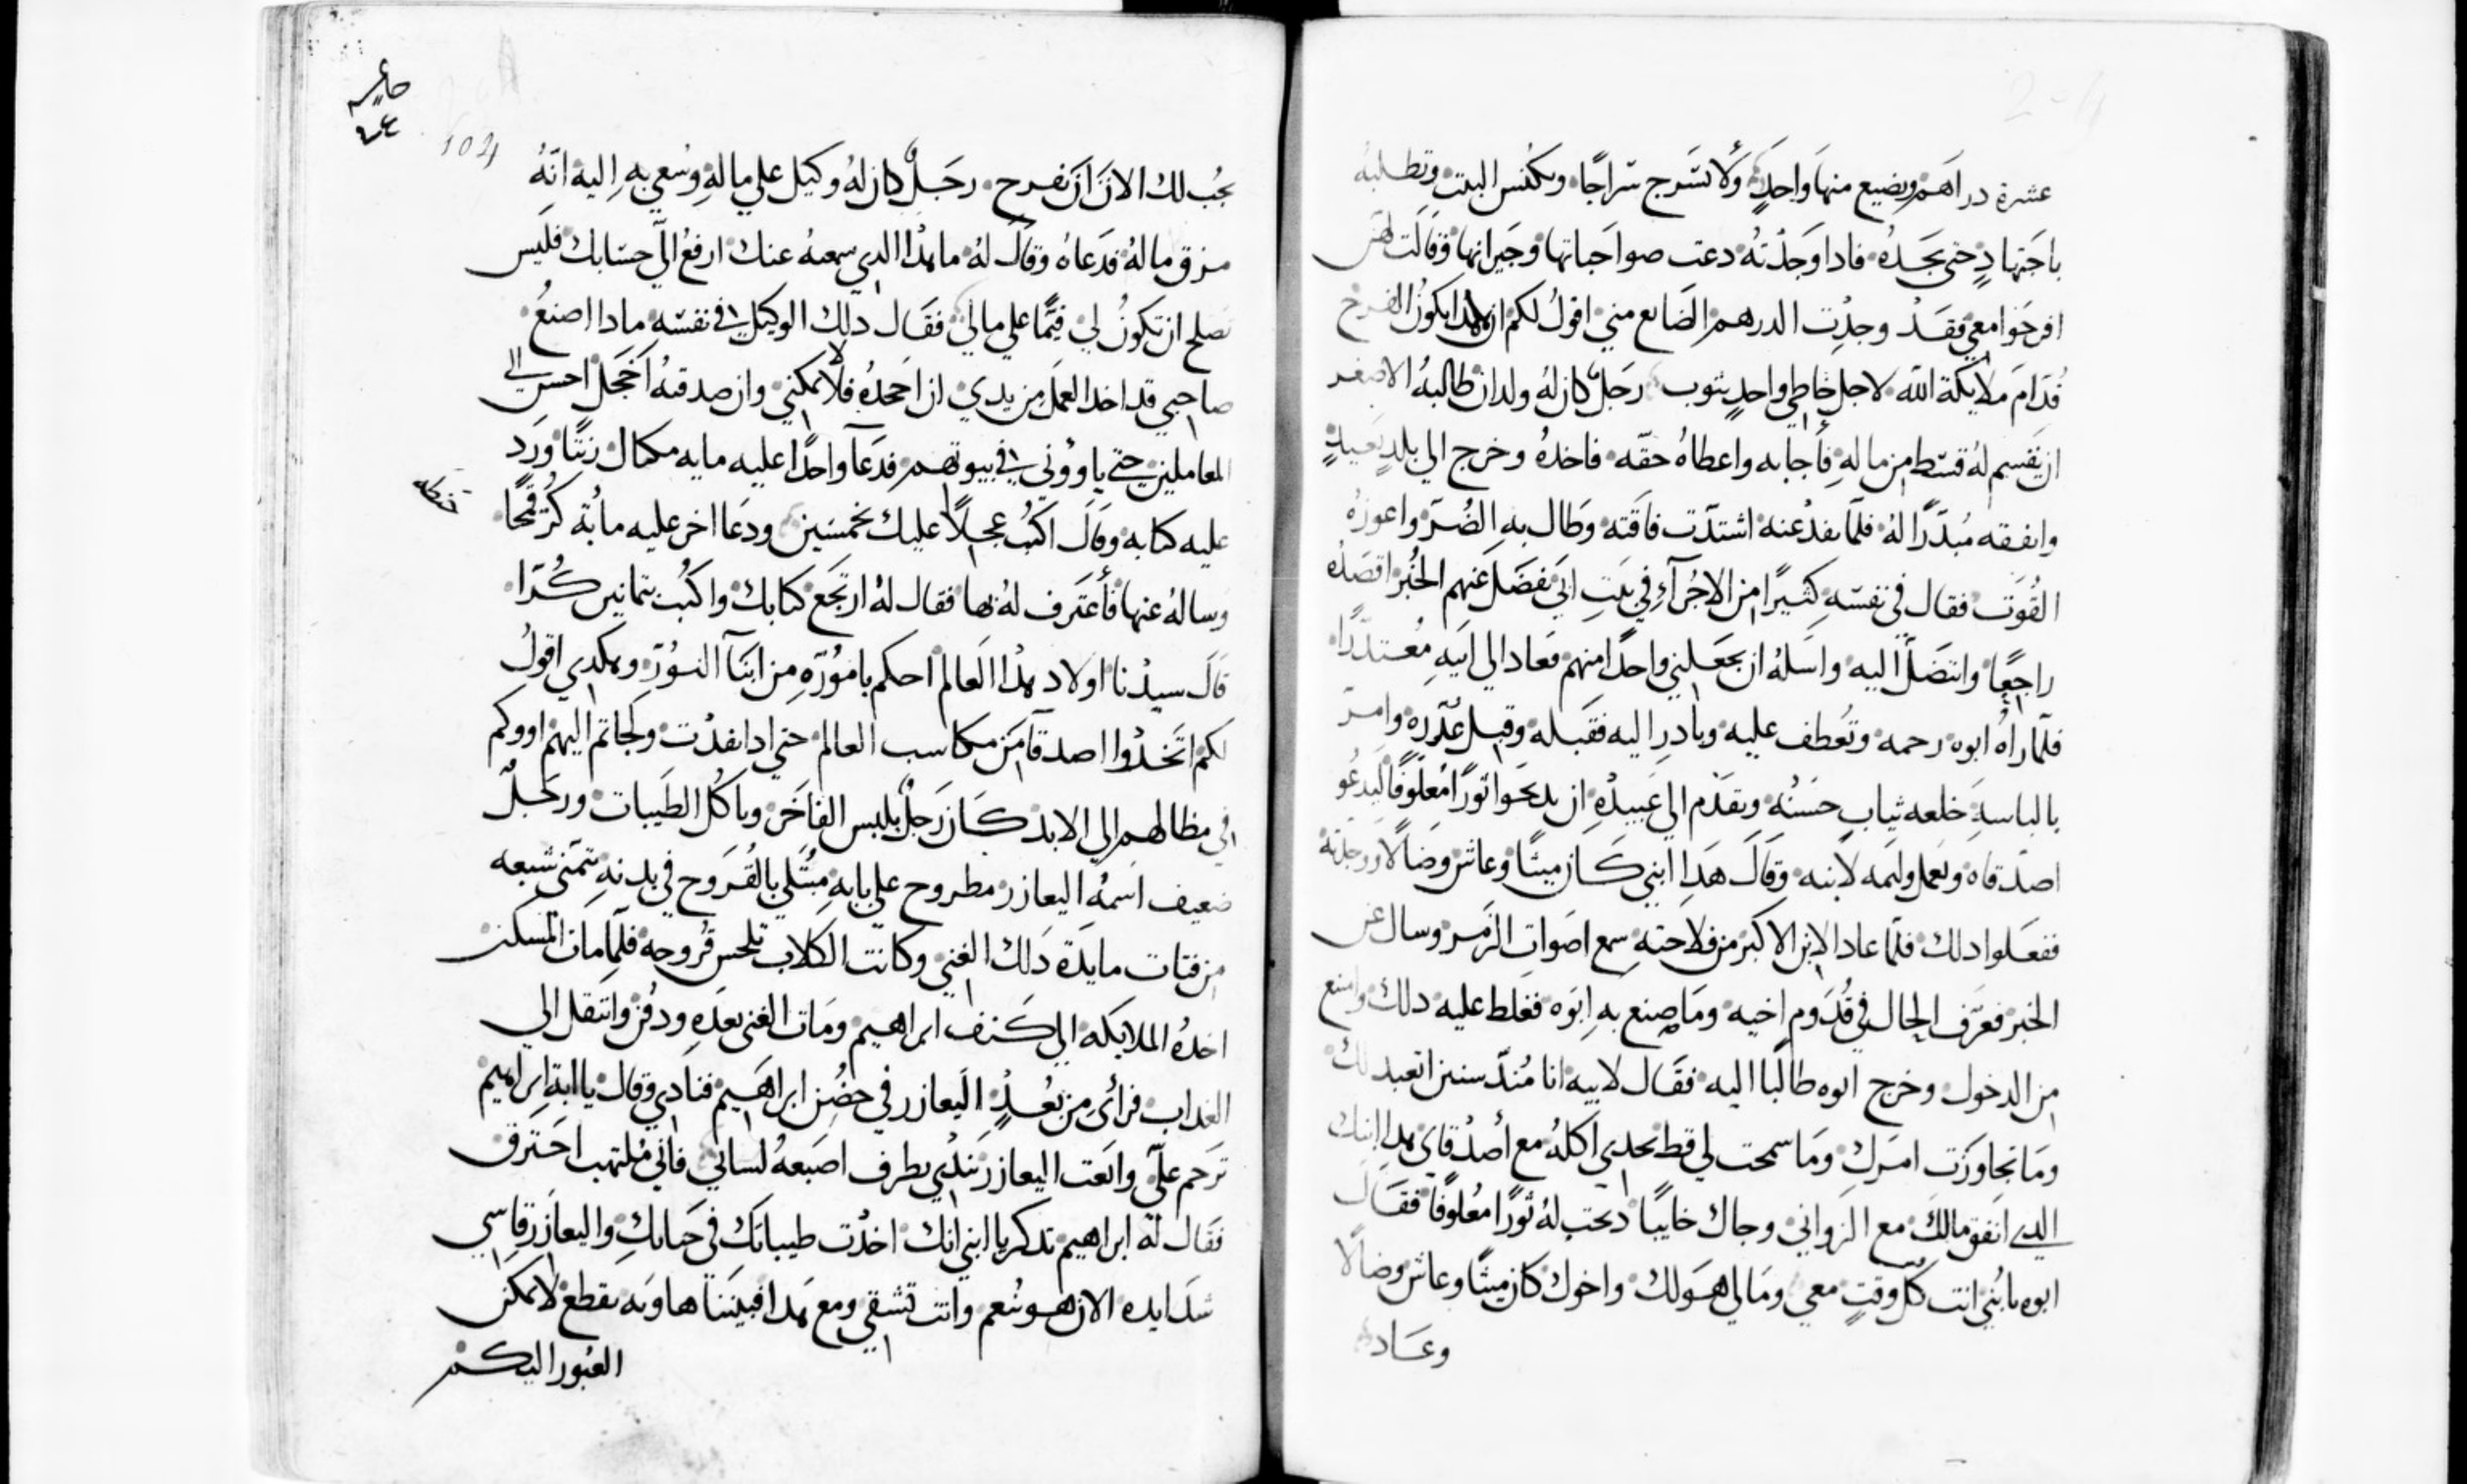 عشرة دراهم ويضيع منها واحد ولا تسرج سراجا وتكنس البيت وتطلبه
باجتهاد حتى تجده فادا وجدته دعت صواحباتها وجيرانها وقالت لهن
افرحوا معي فقد وجدت الدرهم الضايع مني اقول لكم ان هدا يكون الفرح
قدام ملايكة الله لاجل خاطي واحد يتوب رجل كان له ولدان طالبه الاصغر
ان يقسم له قسط من ماله فاجابه واعطاه حقه فاخده وخرج الي بلد بعيد
وانفقه مبددا له فلما نفد عنه اشتدت فاقته وطال به الضر واعوزه
القوت فقال في نفسه كثيرا من الاجرآء في بيت ابي يفضل عنهم الخبز اقصده
راجعا واتنصل اليه واسله ان يجعلني واحدا منهم فعاد الي ابيه معتدرا
فلما راه ابوه رحمه وتعطف عليه وبادر اليه فقبله وقبل عدره وامر
بالباسه خلعه ثياب حسنه وتقدم الي عبيده ان يدبحوا ثورا معلوفا ليدعو
اصدقاه ويعمل وليمه لابنه وقال هدا ابني كان ميتا وعاش وضالا ووجدته
ففعلوا دلك فلما عاد الابن الاكبر من فلاحته سمع اصوات الزمر وسال عن
الخبر فعرف الحال في قدوم اخيه وما صنع به ابوه فغلط عليه دلك وامتنع
من الدخول وخرج ابوه طالبا اليه فقال لابيه انا مند سنين اتعبد لك
وما تجاوزت امرك وما سمحت لي قط بجدي اكله مع أصدقاي هدا ابنك
الدي انفق مالك مع الزواني وجاك خايبا دبحت له ثورا معلوفا فقال
ابوه يا بني انت كل وقت معي ومالي هو لك واخوك كان ميتا وعاش وضالا
وعاد
104
يجب لك الان ان تفرح رجل كان له وكيل علي ماله وسعي به اليه انه
مزق ماله فدعاه وقال له ما هدا الدي سمعته عنك ارفع الي حسابك فليس
تصلح ان تكون لي قيما علي مالي فقال دلك الوكيل في نفسه مادا اصنع
صاحبي قد اخد العمل من يدي ان اجحده فلا يمكني وان صدقته اخجل احسن الي
المعاملين حتي ياووني في بيوتهم فدعا واحدا عليه مايه مكيال زيتا ورد
عليه كتابه وقال اكتب عجلا عليك خمسين ودعا اخر عليه مائة كر قمحا
وساله عنها فأعترف له بها فقال له ارتجع كتابك واكتب تمانين كرا
قال سيدنا اولاد هدا العالم احكم باموره من ابنآ النور وهكدي اقول
لكم اتخدوا اصدقآ من مكاسب العالم حتي ادا نفدت ولجاتم اليهم اووكم
في مظالهم الي الابد كان رجل يلبس الفاخر وياكل الطيبات ورجل
ضعيف اسمه اليعازر مطروح علي بابه مبتلي بالقروح في بدنه يتمني شبعه
من فتات مايدة دلك الغني وكانت الكلاب تلحس قروحه فلما مات المسكين
اخده الملايكه الي كنف ابراهيم ومات الغني بعده ودفن وانتقل الي
العداب فرائ من بعد اليعازر في حضن ابراهيم فنادي وقال يا ابة ابراهيم
ترحم علي وابعت اليعازر يندي بطرف اصبعه لساني فاني ملتهب احترق
فقال له ابراهيم تدكر يا ابني انك اخدت طيباتك في حياتك واليعازر قاسي
شدايده الان هو ينعم وانت تشقي ومع هدا فبيننا هاويه بقطع لا يمكن
العبور اليكم